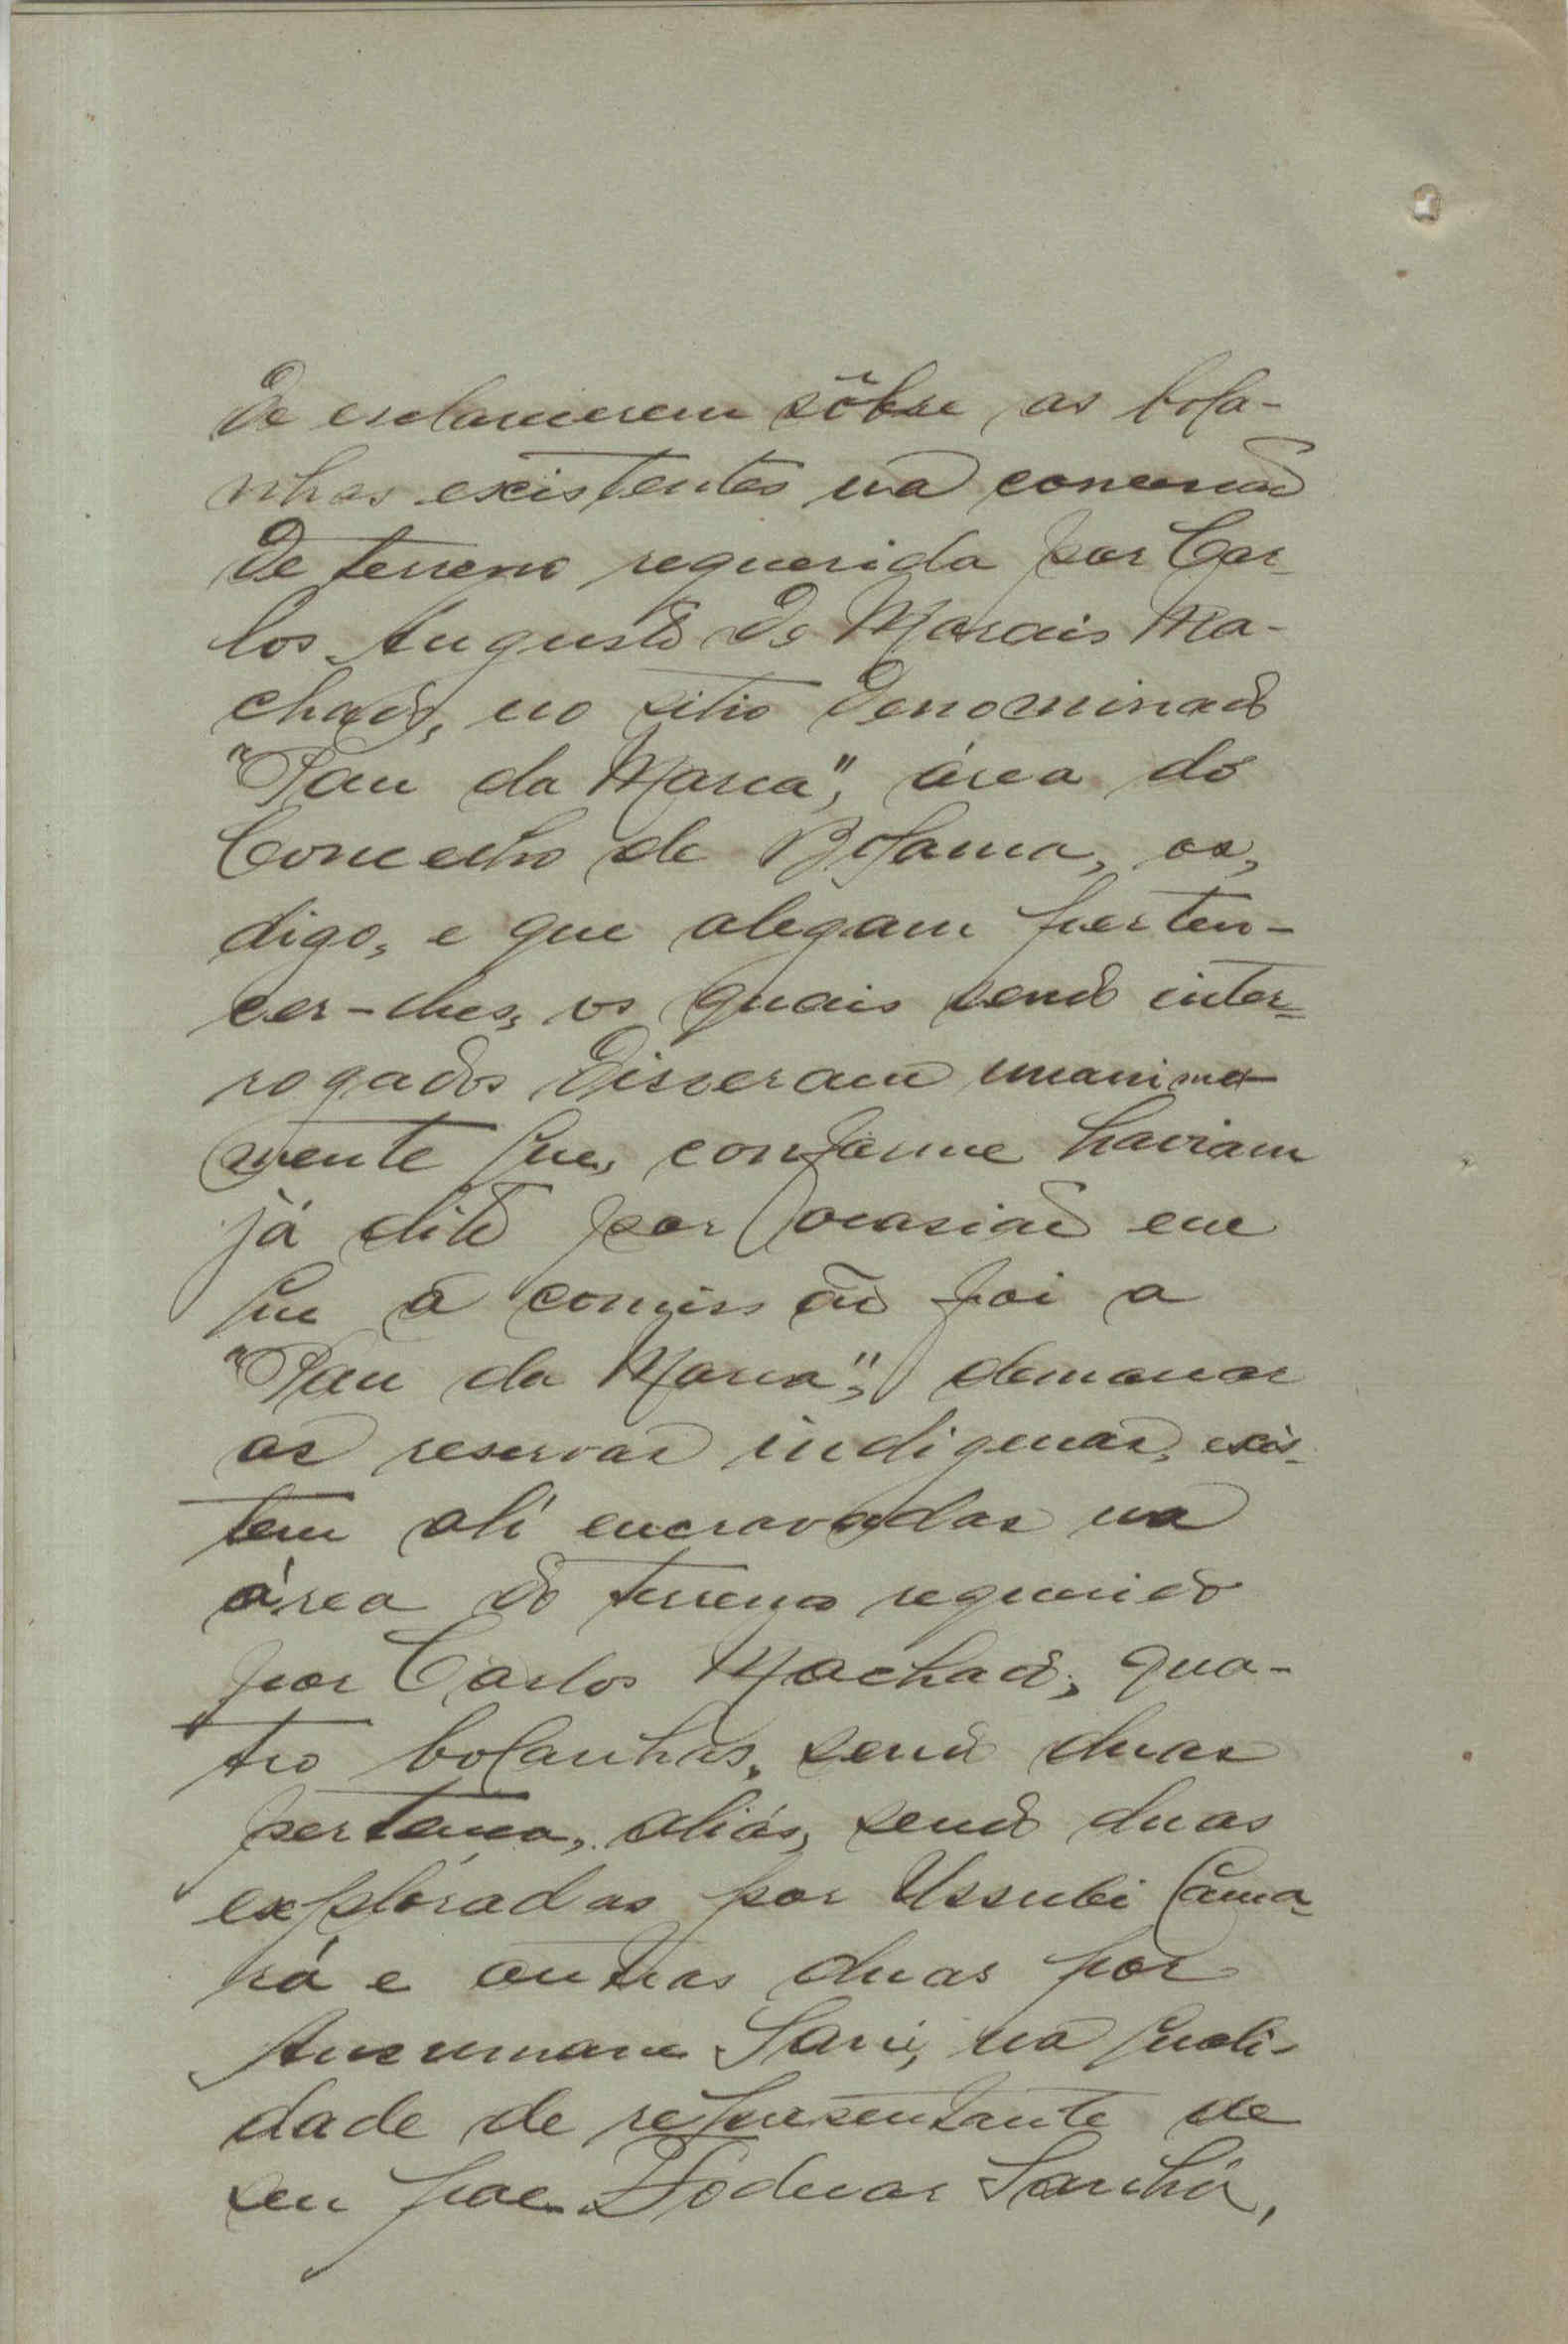 de esclarecerem sôbre as bola-
nhas existentes na concessão
de terreno requerida por Car-
los Augusto de Morais Ma-
chado, no sitio denominado
"Pau da Marca", área do
Concelho de Bolama, os,
digo, e que alegam perten-
cer-lhes, os quais sendo inter-
rogados disseram unanime-
mente que, conforme haviam
já dito por ocasião em
que a comissão foi a
"Pau da Marca", demarcar
as reservas indigenas, exis-
tem ali encravadas na
área do terreno requerido
por Carlos Machado, qua-
tro bolanhas, sendo duas
pertença, aliás, sendo duas
exploradas por Ussubi Cama-
rá e outras duas por
Ansumane Sani, na quali-
dade de representante de
seu pae Foduar Sanhá,